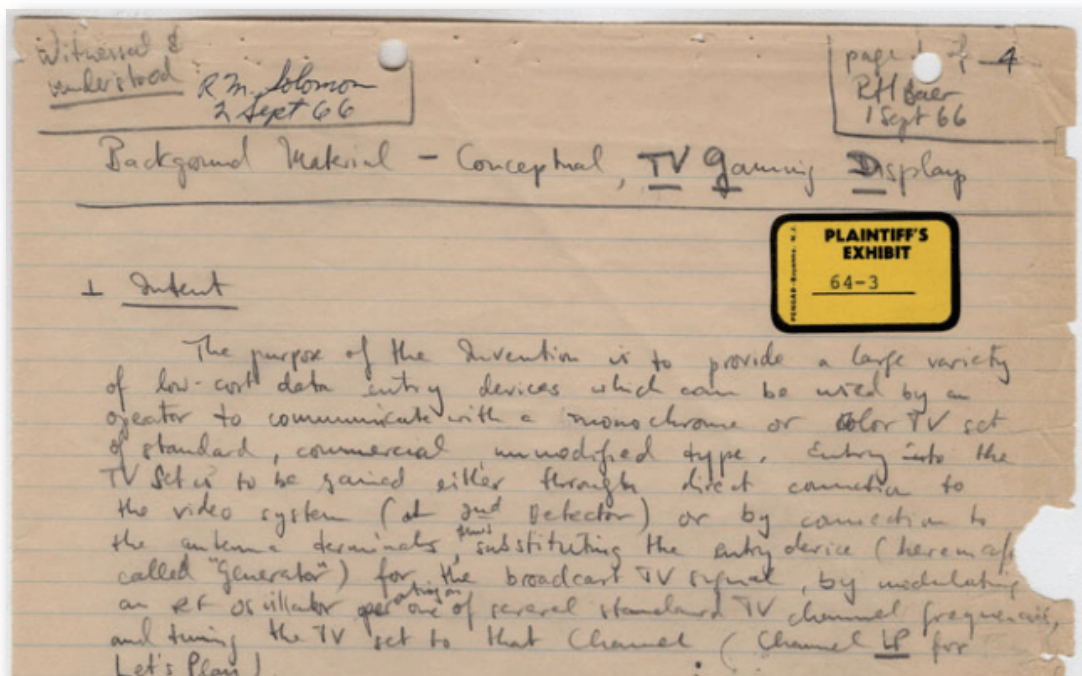 Witnessed &
understood
R M. Solomon
2 Sept 66
page 1 of 4
RH Baer
1 Sept 66
Backgound Material - Conceptual, TV Gaming Display
PLAINTIFF'S
EXHIBIT
64-3
1 Intent
The purpose of the Invention is to provide a large variety
of low-cost data entry devices which can be used by an
opeator to communicate with a monochrome or color TV set
of standard, commercial, unmodified type. Entry into the
TV Set is to be gained either through direct connection to
the video system (at 2nd Detector) or by connection to
the antenna terminals, thus substituting the entry device (hereinaf
called "generator") for the broadcast TV signal, by modulating
an RF oscillator operating on one of several standard TV channel frequencies,
and tuning the TV set to that Channel (Channel LP for
Let's Play)